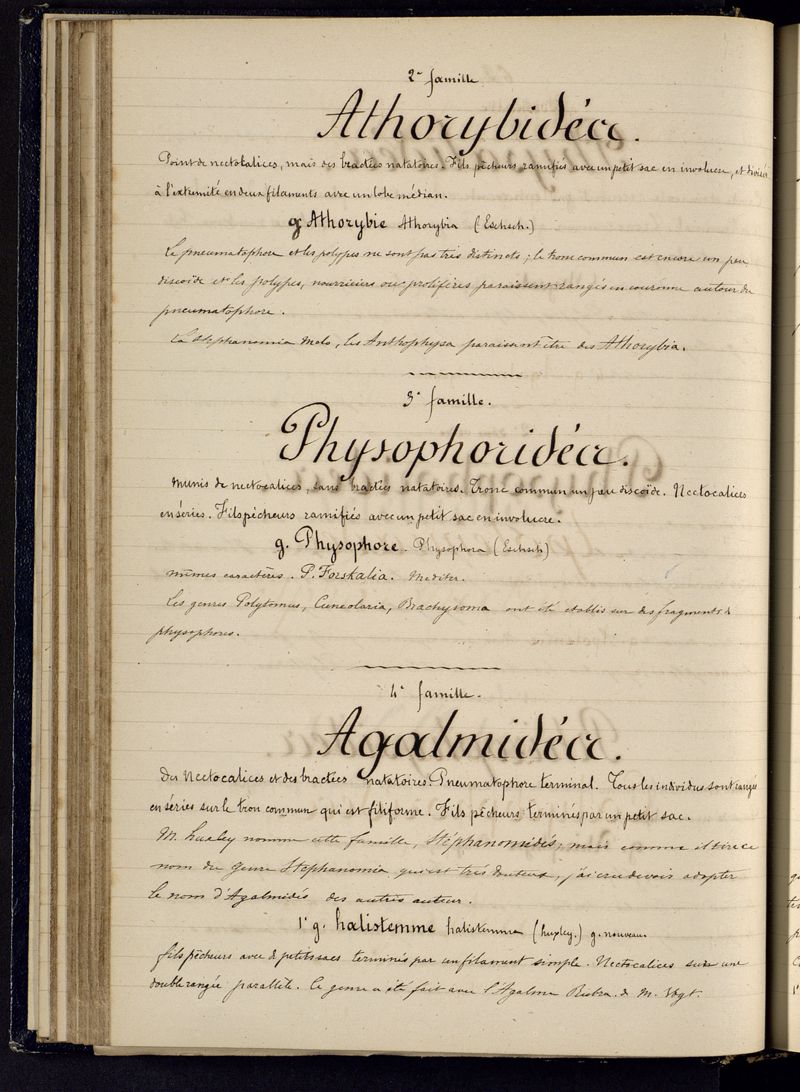 2e famille
Athorybidées.
Point de nectocalices, mais des bractées natatoires. Fils pêcheurs ramifiés avec un petit sac en involucre, et divisés
à l'extrémité en deux filaments avec un lobe médian.
g Athorybie Athorybia (Eschsch.)
Le pneumatophore et les polypes ne sont pas très distincts ; le tronc commun est encore un peu
discoïde et les polypes, nourriciers ou prolifères paraissent rangés en couronne autour du
pneumatophore.
La Stephanomia Melo, les Anthophysa paraissent être des Athorybia.
3e famille.
Physophoridées.
Munis de nectocalices, sans bractées natatoires. Tronc commun un peu discoïde. Nectocalices
en séries. Fils pêcheurs ramifiés avec un petit sac en involucre.
g. Physophore. Physophora (Eschsch)
mêmes caractères. P. Forskalia. Mediter.
Les genres Polytomus, Cuneolaria, Brachysoma ont été etablis sur des fragments de
physophores.
4e famille.
Agalmidées.
Des Nectocalices et des bractées natatoires. Pneumatophore terminal. Tous les individus sont rangés
en séries sur le tronc commun qui est filiforme. Fils pêcheurs terminés par un petit sac.
M. Huxley nomme cette famille, Stéphanomidés ; mais comme il tire ce
nom du Genre Stephanomia, qui est très douteux, j'ai cru devoir adopter
le nom d'Agalmidés des autres auteur.
1e g. halistemme halistemma (huxley.) g. nouveau.
fils pêcheurs avec de petits sacs terminés par un filament simple. Nectocalices sur une
double rangée parallèle. Ce genre a été fait avec l'Agalma Rubra de M. Vogt.